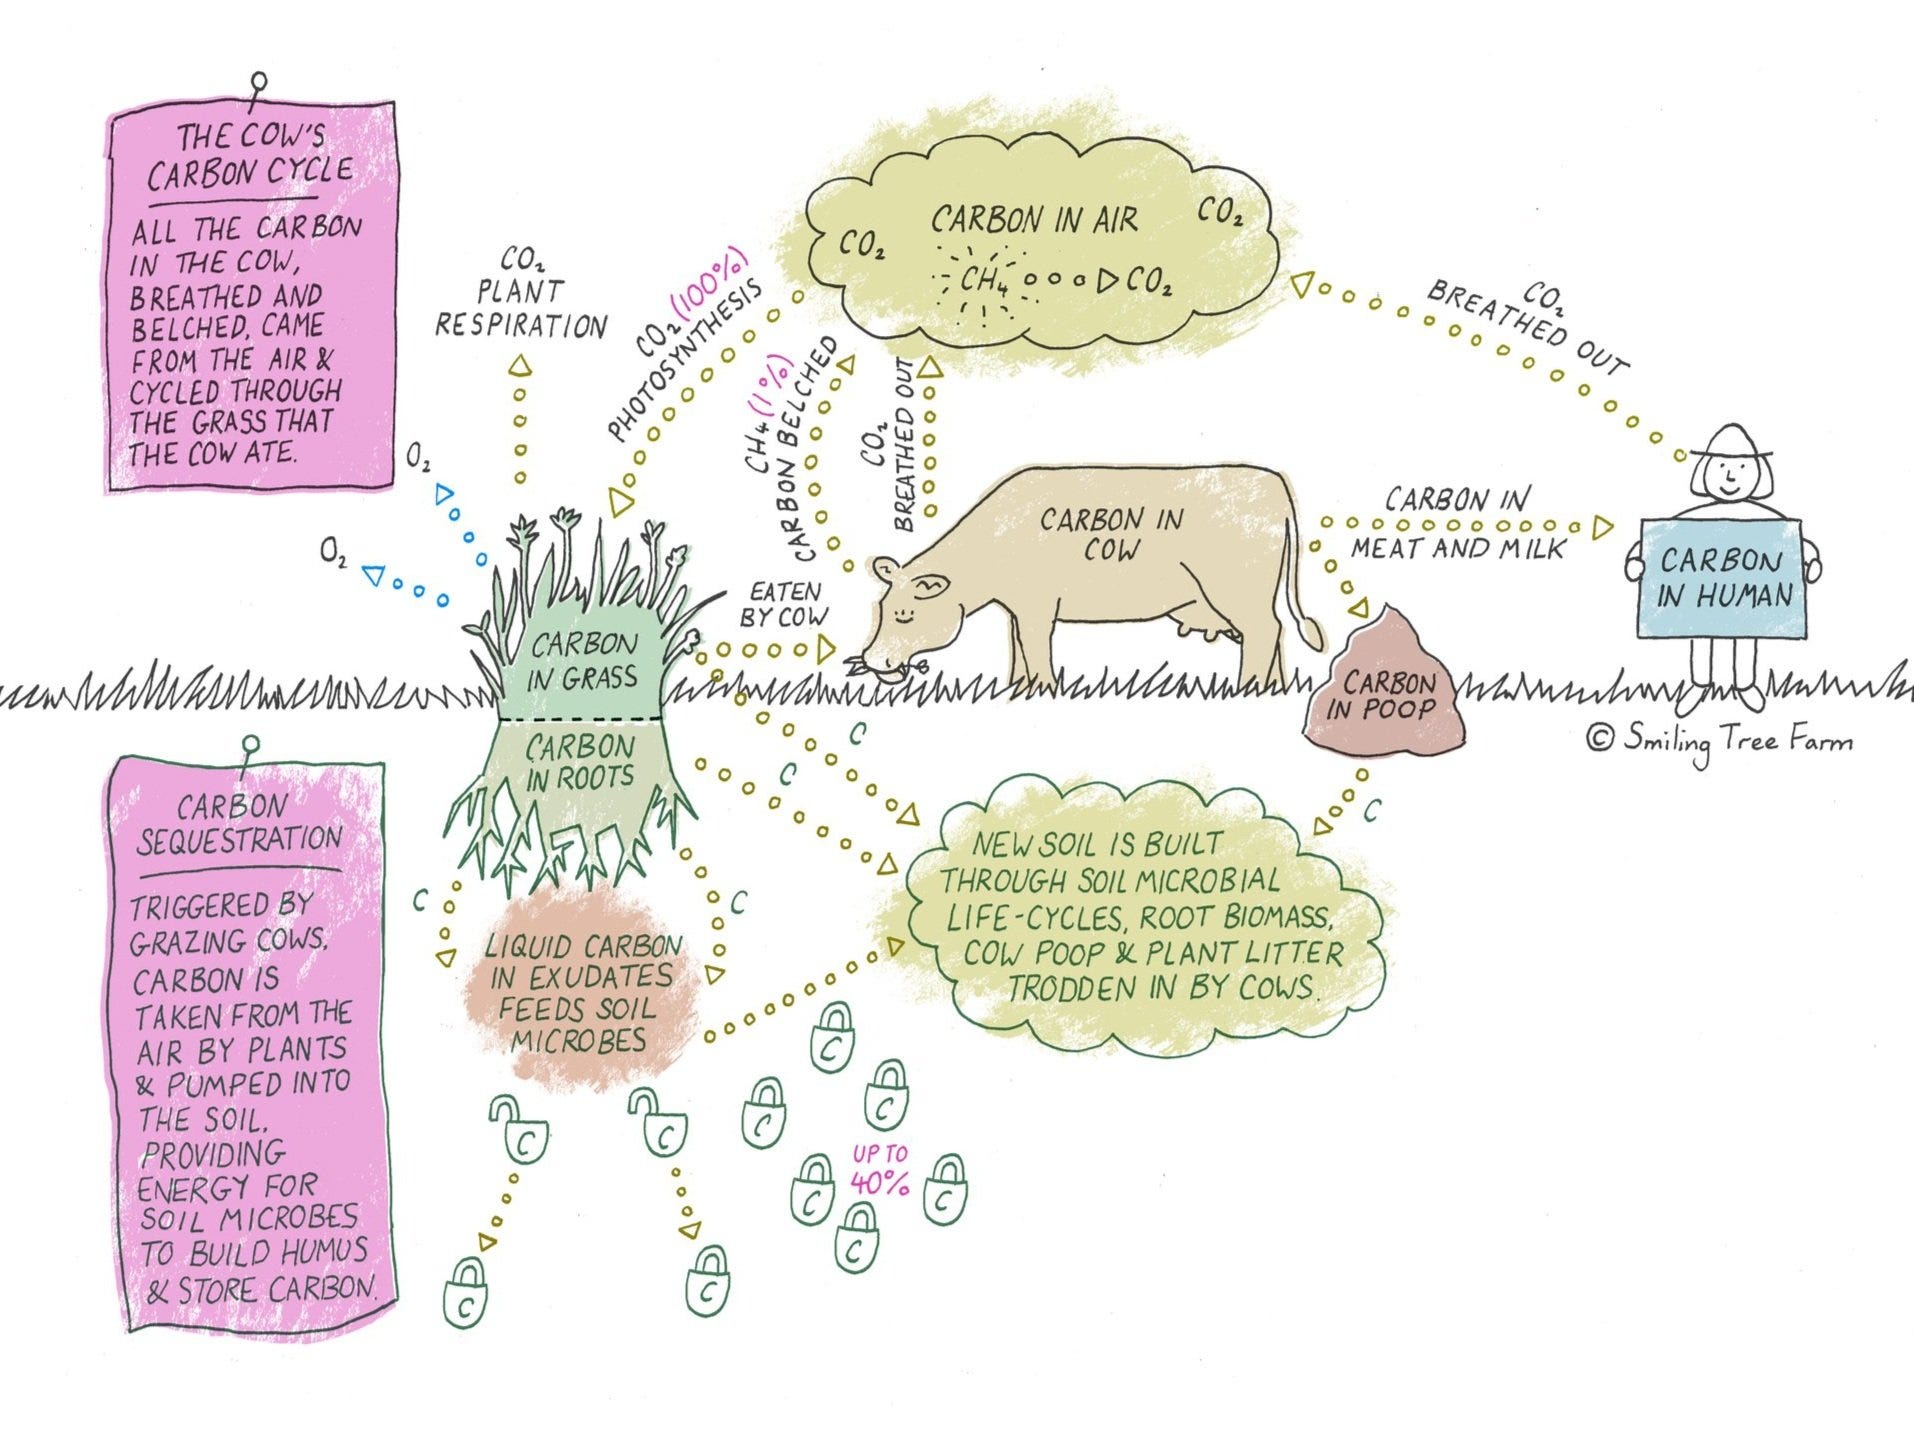 THE COW'S
CARBON CYCLE
ALL THE CARBON
IN THE COW,
BREATHED AND
BELCHED, CAME
FROM THE AIR &
CYCLED THROUGH
THE GRASS THAT
THE COW ATE.
CO₂
PLANT
RESPIRATION
O₂
O₂
CO₂ (100%)
PHOTOSYNTHESIS
CARBON IN AIR
CO₂
CO₂
CH₄
CO₂
CH₄ (1%)
CARBON BELCHED
CO₂
BREATHED OUT
CO₂
BREATHED OUT
CARBON IN
COW
CARBON IN
MEAT AND MILK
CARBON
IN HUMAN
EATEN
BY COW
CARBON
IN GRASS
CARBON
IN ROOTS
CARBON
IN POOP
© Smiling Tree Farm
C
C
C
C
C
CARBON
SEQUESTRATION
TRIGGERED BY
GRAZING COWS,
CARBON IS
TAKEN FROM THE
AIR BY PLANTS
& PUMPED INTO
THE SOIL,
PROVIDING
ENERGY FOR
SOIL MICROBES
TO BUILD HUMUS
& STORE CARBON.
LIQUID CARBON
IN EXUDATES
FEEDS SOIL
MICROBES
NEW SOIL IS BUILT
THROUGH SOIL MICROBIAL
LIFE-CYCLES, ROOT BIOMASS,
COW POOP & PLANT LITTER
TRODDEN IN BY COWS.
C
C
C
C
C
UP TO
40%
C
C
C
C
C